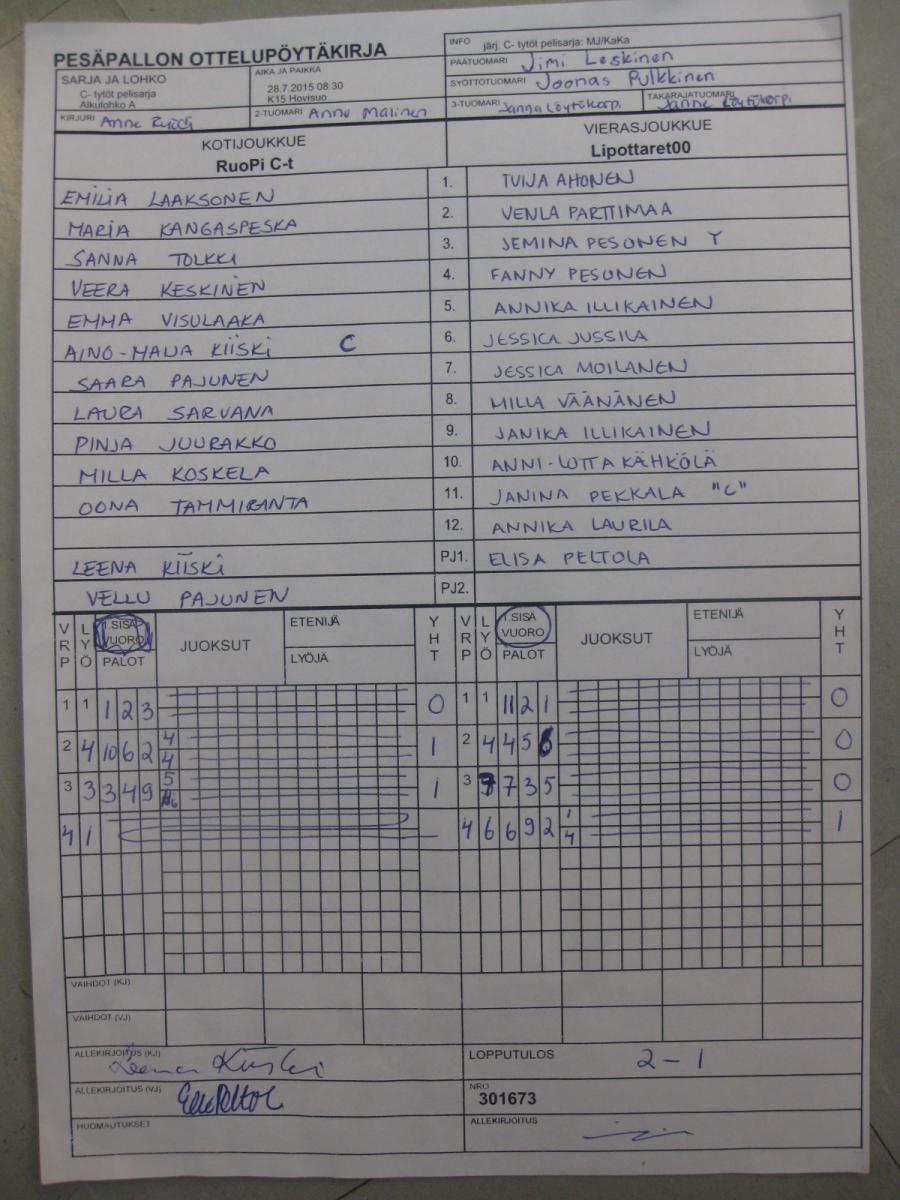 PESÄPALLON OTTELUPÖYTÄKIRJA
INFO järj. C- tytöt pelisarja: MJ/KaKa
SARJA JA LOHKO
C- tytöt pelisarja
Alkulohko A
AIKA JA PAIKKA
28.7.2015 08:30
K15 Hovisuo
PÄÄTUOMARI Jimi Leskinen
SYÖTTÖTUOMARI Joonas Pulkkinen
KIRJURI Anne
2-TUOMARI Anne Malinen
3-TUOMARI Janna Löytökorpi
TAKARAJATUOMARI Janne Löytökorpi
KOTIJOUKKUE
RuoPi C-t
VIERASJOUKKUE
Lipottaret00
EMILIA LAAKSONEN 1. TUIJA AHONEN
MARIA KANGASPESKA 2. VENLA PARTTIMAA
SANNA TOLKKI 3. JEMINA PESONEN Y
VEERA KESKINEN 4. FANNY PESONEN
EMMA VISULAAKA 5. ANNIKA ILLIKAINEN
AINO-MAIJA KIISKI C 6. JESSICA JUSSILA
SAARA PAJUNEN 7. JESSICA MOILANEN
LAURA SARVANA 8. MILLA VÄÄNÄNEN
PINJA JUURAKKO 9. JANIKA ILLIKAINEN
MILLA KOSKELA 10. ANNI-LOTTA KÄHKÖLÄ
OONA TAMMIRANTA 11. JANINA PEKKALA "C"
12. ANNIKA LAURILA
LEENA KIISKI PJ1. ELISA PELTOLA
VELLU PAJUNEN PJ2.
VRP LYÖ 1.SISÄ VUORO PALOT JUOKSUT ETENIJÄ LYÖJÄ YHT VRP LYÖ 1.SISÄ VUORO PALOT JUOKSUT ETENIJÄ LYÖJÄ YHT
1 1 1 2 3 0 1 1 11 2 1 0
2 4 10 6 2 4 4 1 2 4 4 5 6 0
3 3 3 4 9 5 6 1 3 7 7 3 5 0
4 1 4 6 6 9 2 1 4 1
VAIHDOT (KJ)
VAIHDOT (VJ)
ALLEKIRJOITUS (KJ) Leena Kiiski
LOPPUTULOS 2-1
ALLEKIRJOITUS (VJ)
NRO
301673
HUOMAUTUKSET
ALLEKIRJOITUS